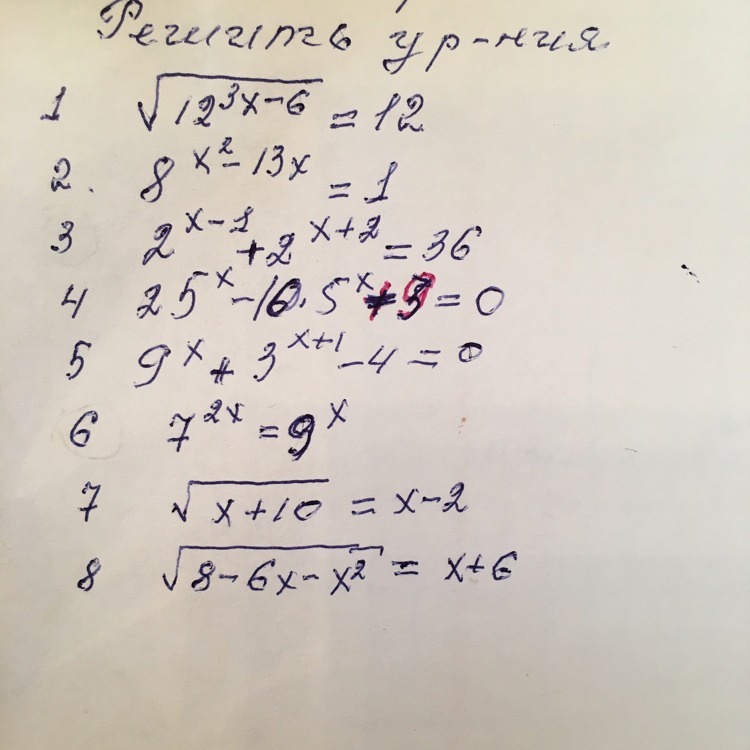 Решить ур-ния
1 √(12^(3x-6)) = 12
2. 8^(x²-13x) = 1
3 2^(x-1) + 2^(x+2) = 36
4 25^x - 10·5^x + 9 = 0
5 9^x + 3^(x+1) - 4 = 0
6 7^(2x) = 9^x
7 √(x+10) = x-2
8 √(8-6x-x²) = x+6